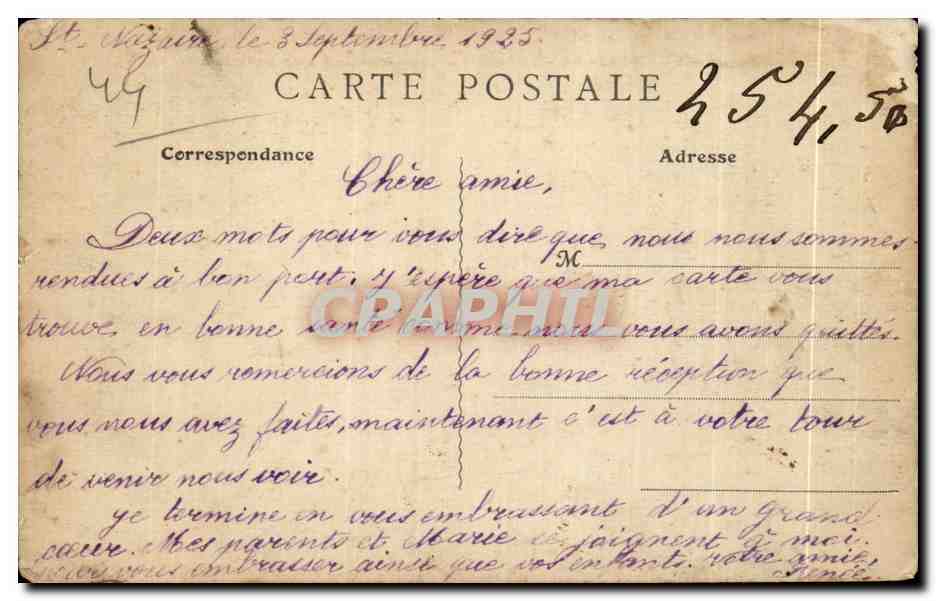 St. Nazaire, le 3 Septembre 1925.
44
CARTE POSTALE
254,50
Correspondance
Adresse
Chère amie,
Deux mots pour vous dire que nous nous sommes
M
rendues à bon port. J'espère que ma carte vous
CPAPHIL
trouve en bonne santé comme nous vous avons quittés.
Nous vous remercions de la bonne réception que
vous nous avez faites, maintenant c'est à votre tour
de venir nous voir.
Je termine en vous embrassant d'un grand
cœur. Mes parents et Marie se joignent à moi
vous embrasser ainsi que vos enfants. votre amie,
Renée.